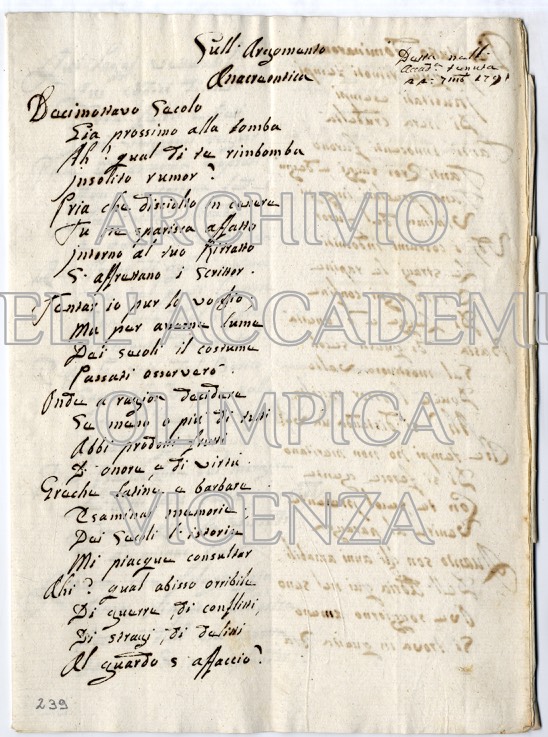 Sull' Argomento
Anacreontica
Detta nell'
Accad.a tenuta
Decimottavo Secolo
Già prossimo alla tomba
Ah! qual di te rimbomba
Insolito rumor?
Pria che disciolto in cenere
Tu te sparisca affatto
Intorno al tuo Ritratto
S' affrettano i Scrittor.
Tentar io pur lo voglio
Ma per averne lume
Dei secoli il costume
Passati osserverò.
Onde a ragion decidere
Se meno o più di tutti
Abbi prodotti frutti
Di onore e di virtù.
Greche latine e barbare
Esaminai memorie,
Dei Secoli l' istorie
Mi piacque consultar
Ahi! qual abisso orribile
Di guerre, di conflitti,
Di stragi, di delitti
Al guardo s' affacciò?
239
ARCHIVIO
ELL'ACCADEMI
OLIMPICA
VICENZA